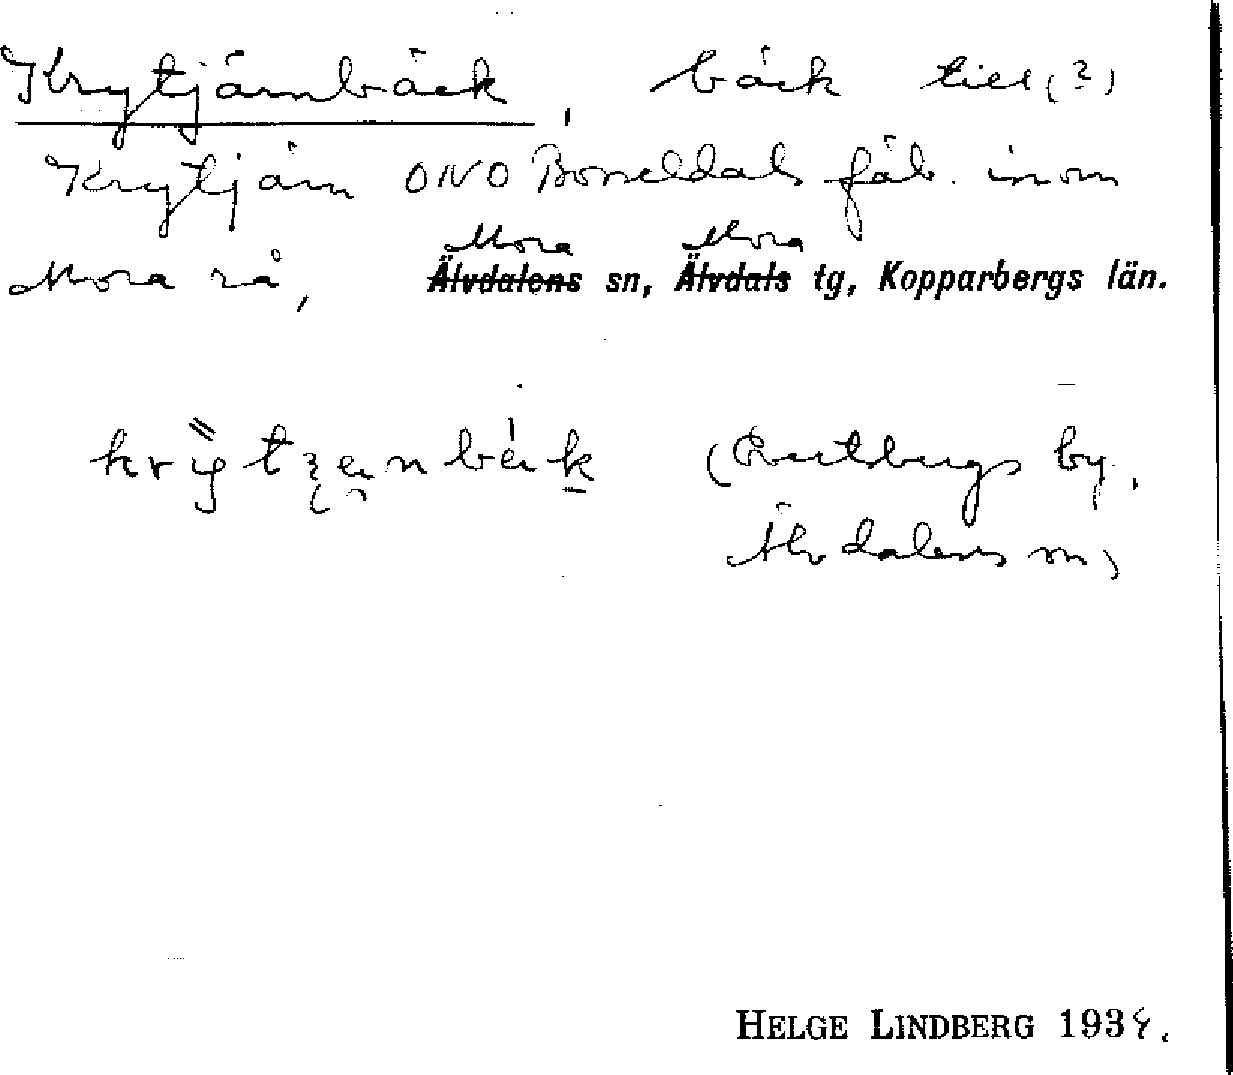 Krytjärnbäck, bäck till (?)
Krytjärn ONO Bosseldals fäb. inom
Mora Mora
Mora rå, Älvdalens sn, Älvdals tg, Kopparbergs län.
(Rutbergs by,
Älvdalens sn)
HELGE LINDBERG 1934.